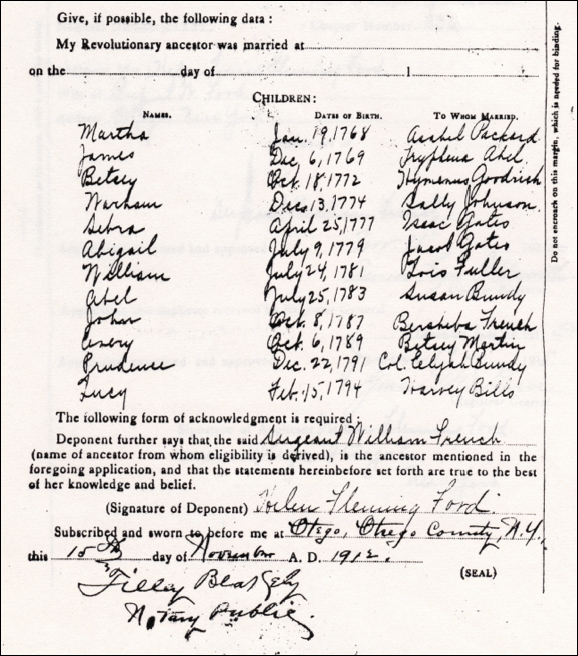 Give, if possible, the following data :
My Revolutionary ancestor was married at
on the day of 1
CHILDREN:
NAMES. DATES OF BIRTH. TO WHOM MARRIED.
Martha Jan. 19, 1768 Asahel Packard
James Dec. 6, 1769 Tryphena Abel
Betsey Oct. 18, 1772 Hymenus Goodrich
Warham Dec. 13, 1774 Sally Johnson
Debra April 25, 1777 Isac Gates
Abigail July 9, 1779 Jacob Gates
William July 24, 1781 Lois Fuller
Abel July 25, 1783 Susan Bundy
John Oct. 8, 1787 Bersheba French
Avery Oct. 6, 1789 Betsey Martin
Prudence Dec. 22, 1791 Col. Elijah Bundy
Lucy Feb. 15, 1794 Harvey Bills
The following form of acknowledgment is required :
Deponent further says that the said Sergeant William French
(name of ancestor from whom eligibility is derived), is the ancestor mentioned in the
foregoing application, and that the statements hereinbefore set forth are true to the best
of her knowledge and belief.
(Signature of Deponent) Helen Fleming Ford.
Subscribed and sworn to before me at Otego, Otsego County, N.Y.,
this 15th day of November A. D. 1912.
(SEAL)
Tilly Blakely
Notary Public.
Do not encroach on this margin, which is needed for binding.